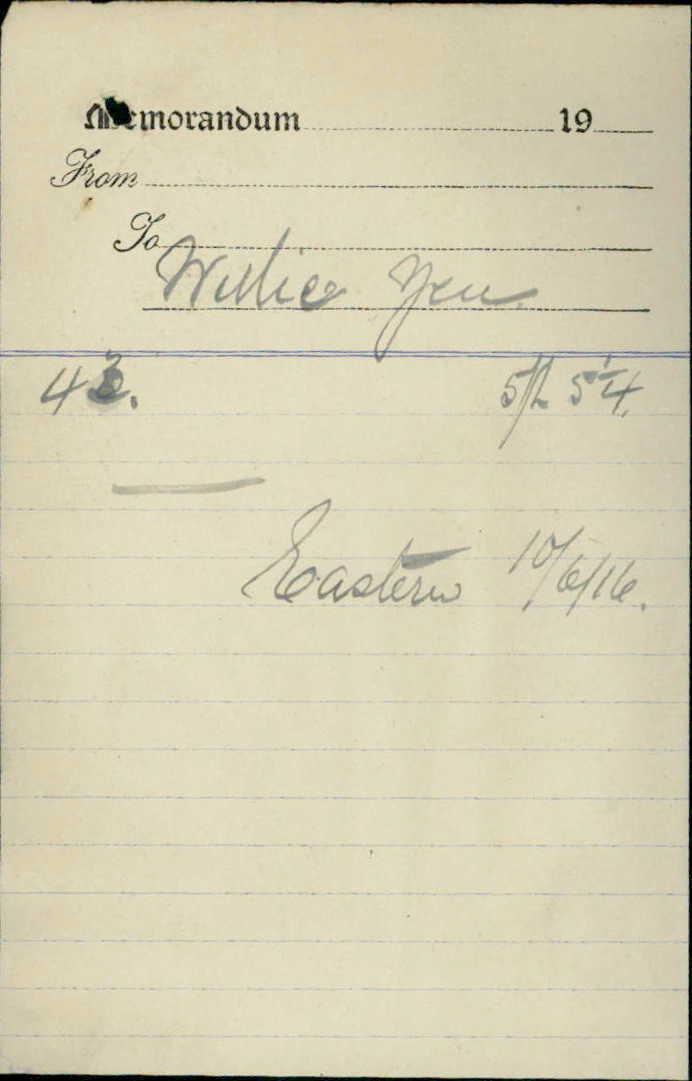 Memorandum 19
From
To
Willie Yen.
43. 5ft 5¼.
Eastern 10/6/16.